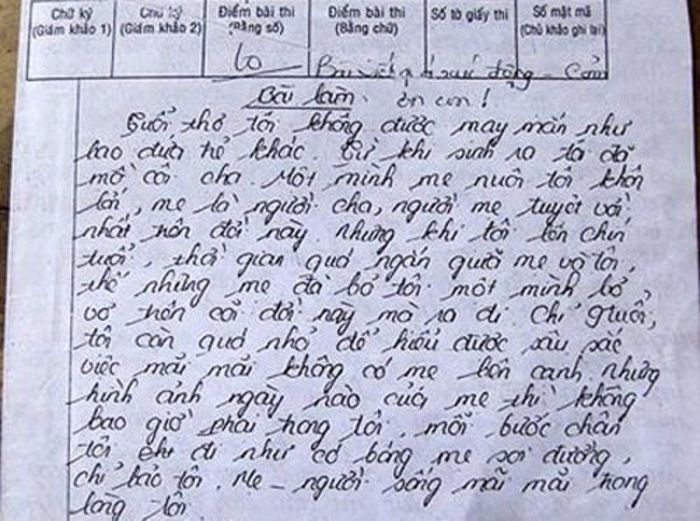 Chữ ký
(Giám khảo 1)
Chữ ký
(Giám khảo 2)
Điểm bài thi
(Bằng số)
Điểm bài thi
(Bằng chữ)
Số tờ giấy thi
Số mật mã
(Chủ khảo ghi lại)
10
Bài viết quá xúc động - Cảm
ơn con!
Bài làm
Tuổi thơ tôi không được may mắn như
bao đứa trẻ khác. Từ khi sinh ra tôi đã
mồ côi cha. Một mình mẹ nuôi tôi khôn
lớn, mẹ là người cha, người mẹ tuyệt vời
nhất trên đời này. Nhưng khi tôi lên chín
tuổi, thời gian quá ngắn giữa mẹ và tôi,
thế nhưng mẹ đã bỏ tôi một mình bơ
vơ trên cõi đời này mà ra đi. Chỉ 9 tuổi,
tôi còn quá nhỏ để hiểu được sâu sắc
việc mãi mãi không có mẹ bên cạnh. Nhưng
hình ảnh ngày nào của mẹ thì không
bao giờ phai trong tôi, mỗi bước chân
tôi khi đi như có bóng mẹ soi đường,
chỉ bảo tôi. Mẹ - người sống mãi mãi trong
lòng tôi.